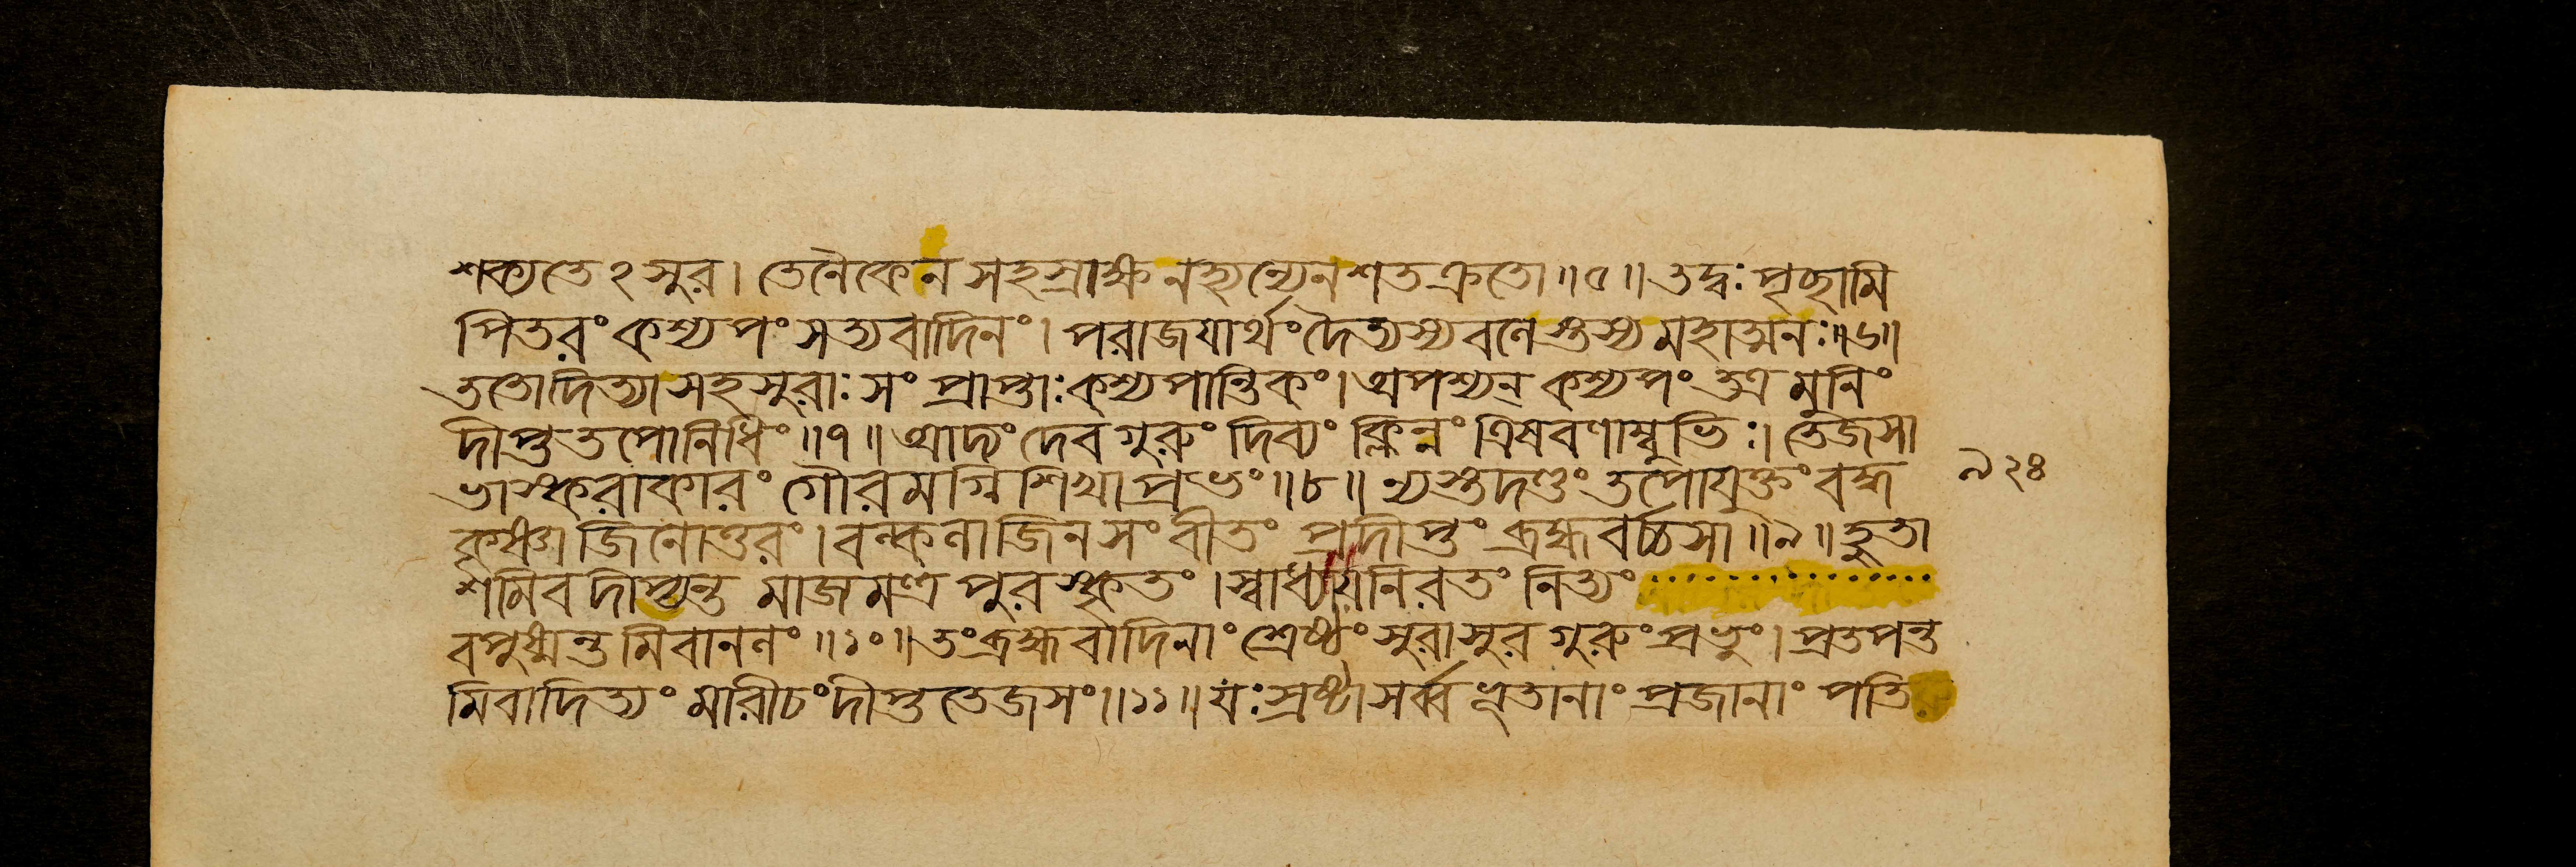 শক্যতে২সুর। তেনৈকেন সহস্রাক্ষ নহ্যন্যেন শতক্রতো॥৫॥ তদ্বঃ পৃছামি
পিতরং কশ্যপং সত্যবাদিনং। পরাজযার্থং দৈত্যস্য বলেস্তস্য মহাত্মনঃ॥৬॥
ততোদিত্যা সহ সুরাঃ সং প্রাপ্তাঃ কশ্যপান্তিকং। অপশ্যন্ত কশ্যপং তত্র মুনিং
দীপ্ততপোনিধিং॥৭॥ আদ্যং দেবগুরুং দিব্যং ক্লিন্নং ত্রিষবণাম্বুভিঃ। তেজসা
ভাস্করাকারং গৌরমগ্নিশিখাপ্রভং॥৮॥ ন্যস্তদণ্ডং তপোযুক্তং বদ্ধ ৯২৪
কৃষ্ণাজিনোত্তরং। বল্কলাজিন সংবীতং প্রদীপ্তং ব্রহ্মবর্চ্চসা॥৯॥ হুতা
শমিব দীপ্যন্ত মাজ্যমন্ত্র পুরস্কৃতং। স্বাধ্যায়নিরতং নিত্যং ................
বপুষ্মন্তমিবাননং॥১০॥ তং ব্রহ্মবাদিনাং শ্রেষ্ঠং সুরাসুরগুরুং প্রভুং। প্রতপন্ত
মিবাদিত্যং মারীচং দীপ্ততেজসং॥১১॥ যঃ স্রষ্টা সর্ব্বভূতানাং প্রজানাং পতি